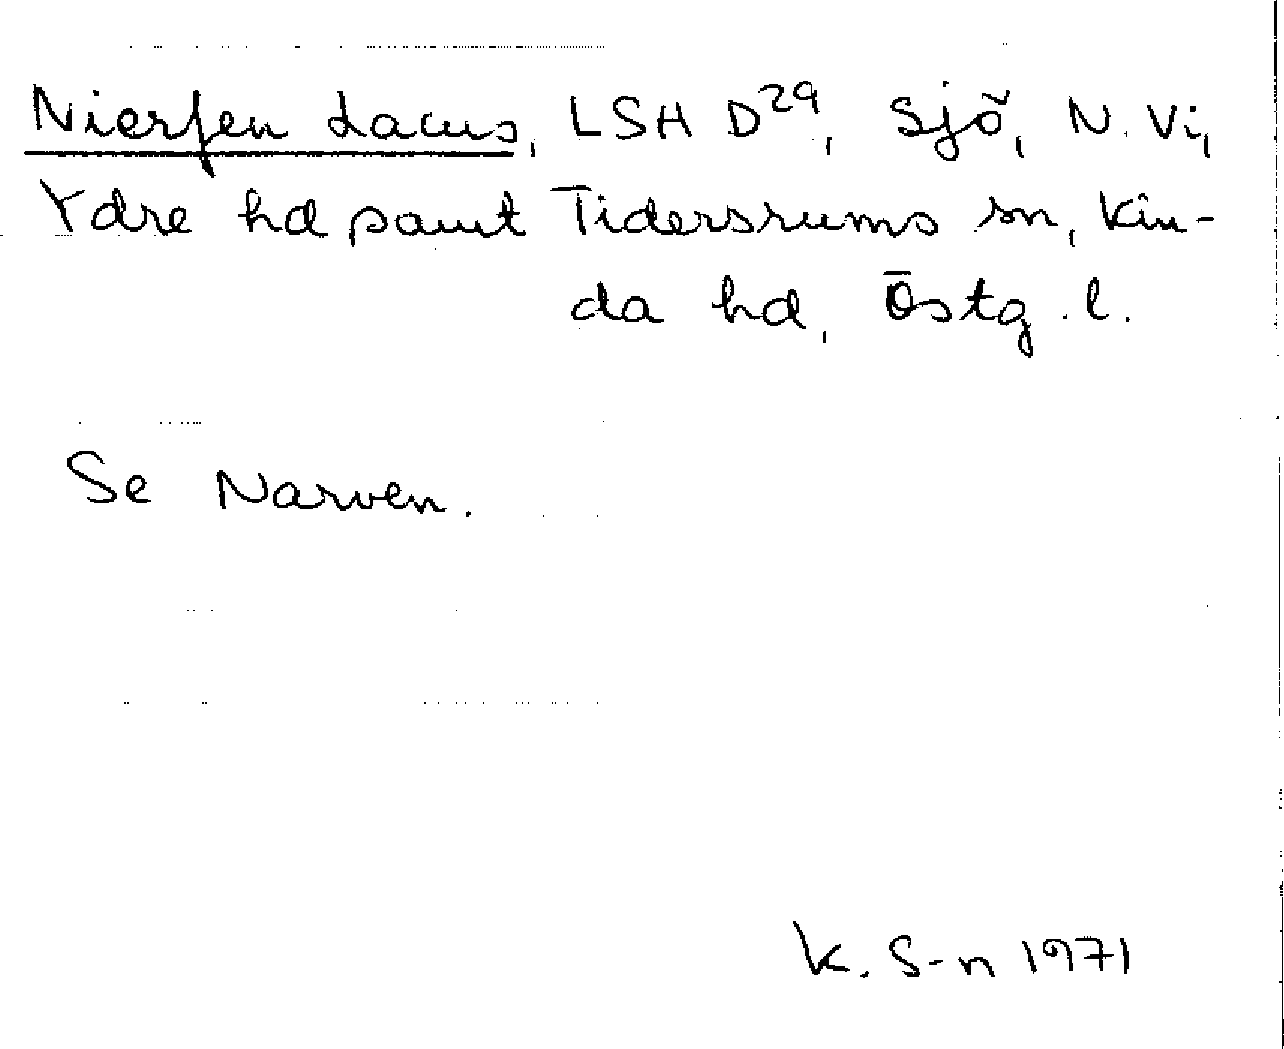 Nierfen Lacus, LSH D29, Sjö, N. Vi,
Ydre hd samt Tidersrums sn, Kin-
da hd, Östg. l.
Se Narven.
K. S-n 1971